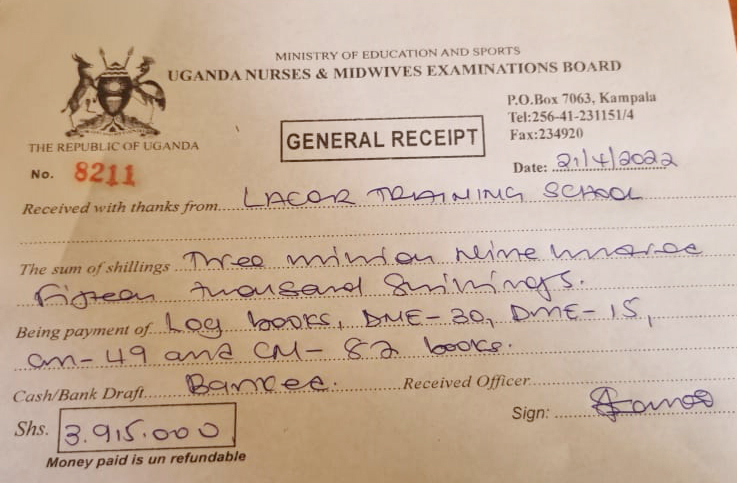 MINISTRY OF EDUCATION AND SPORTS
UGANDA NURSES & MIDWIVES EXAMINATIONS BOARD
P.O.Box 7063, Kampala
Tel:256-41-231151/4
Fax:234920
THE REPUBLIC OF UGANDA
GENERAL RECEIPT
No. 8211
Date: 21/4/2022
Received with thanks from LACOR TRAINING SCHOOL
The sum of shillings Three million Nine hundred
Fifteen thousand Shillings.
Being payment of Log books, DME-20, DME-15,
CM-49 and CM-82 books.
Cash/Bank Draft Banked. Received Officer
Sign:
Shs. 3.915.000
Money paid is un refundable